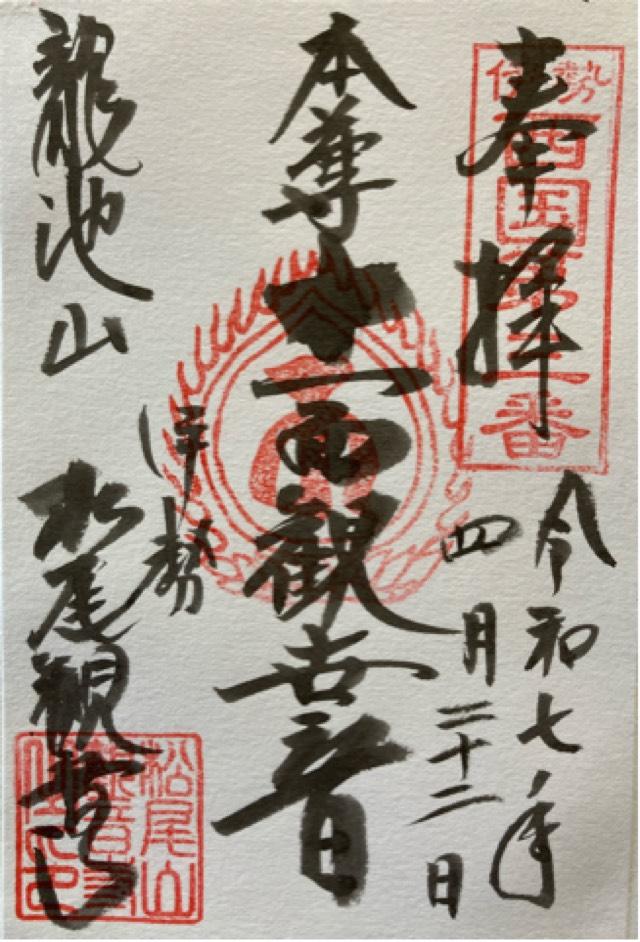 奉拝
伊勢
西国第三番
令和七年
四月二十二日
本尊
十一面観世音
伊勢
龍池山
松尾観音寺
松尾山